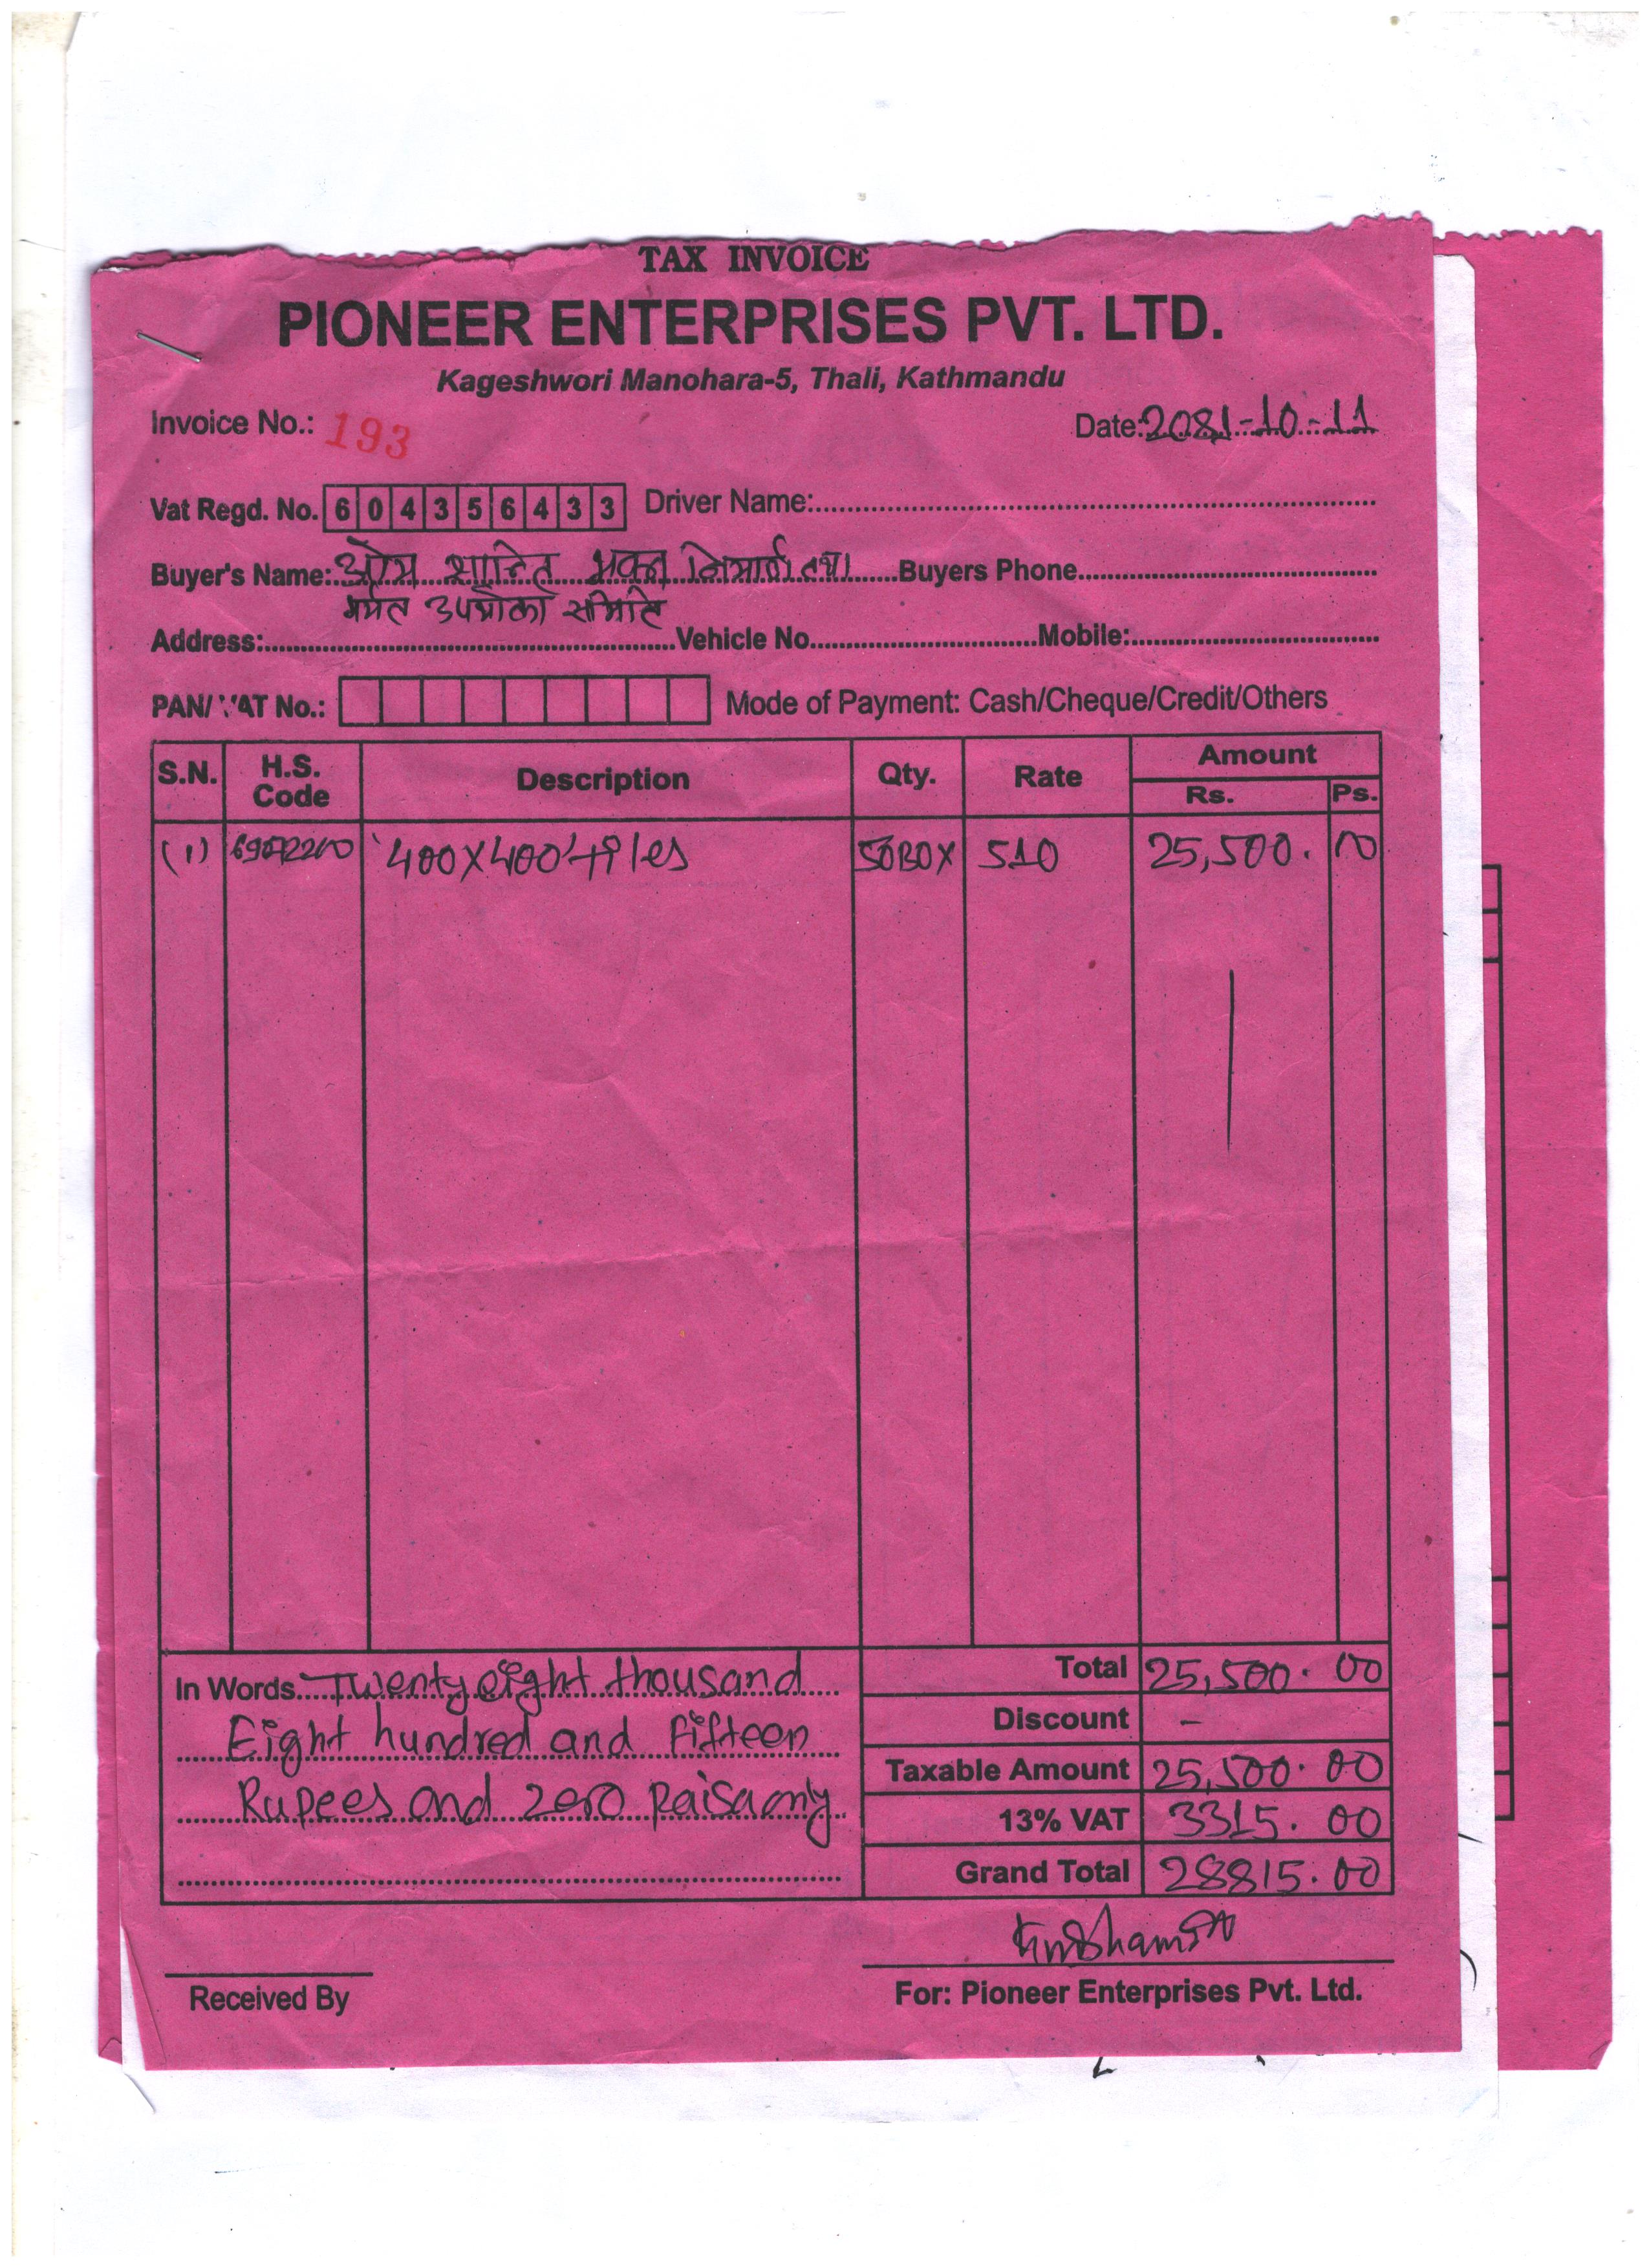 TAX INVOICE
PIONEER ENTERPRISES PVT. LTD.
Kageshwori Manohara-5, Thali, Kathmandu
Invoice No.: 193 Date: 2081-10-11
Vat Regd. No. 604356433 Driver Name:
Buyer's Name: ओम शान्ति भवन निर्माण तथा Buyers Phone
मर्मत उपभोक्ता समिति
Address: Vehicle No. Mobile:
PAN/VAT No.: Mode of Payment: Cash/Cheque/Credit/Others
S.N. H.S. Code Description Qty. Rate Amount
Rs. Ps.
(1) 400x400 tiles 50BOX 510 25,500. 00
In Words Twenty eight thousand Total 25,500.00
Eight hundred and Fifteen Discount -
Rupees and zero paisa only Taxable Amount 25,500.00
13% VAT 3315.00
Grand Total 28815.00
Received By For: Pioneer Enterprises Pvt. Ltd.